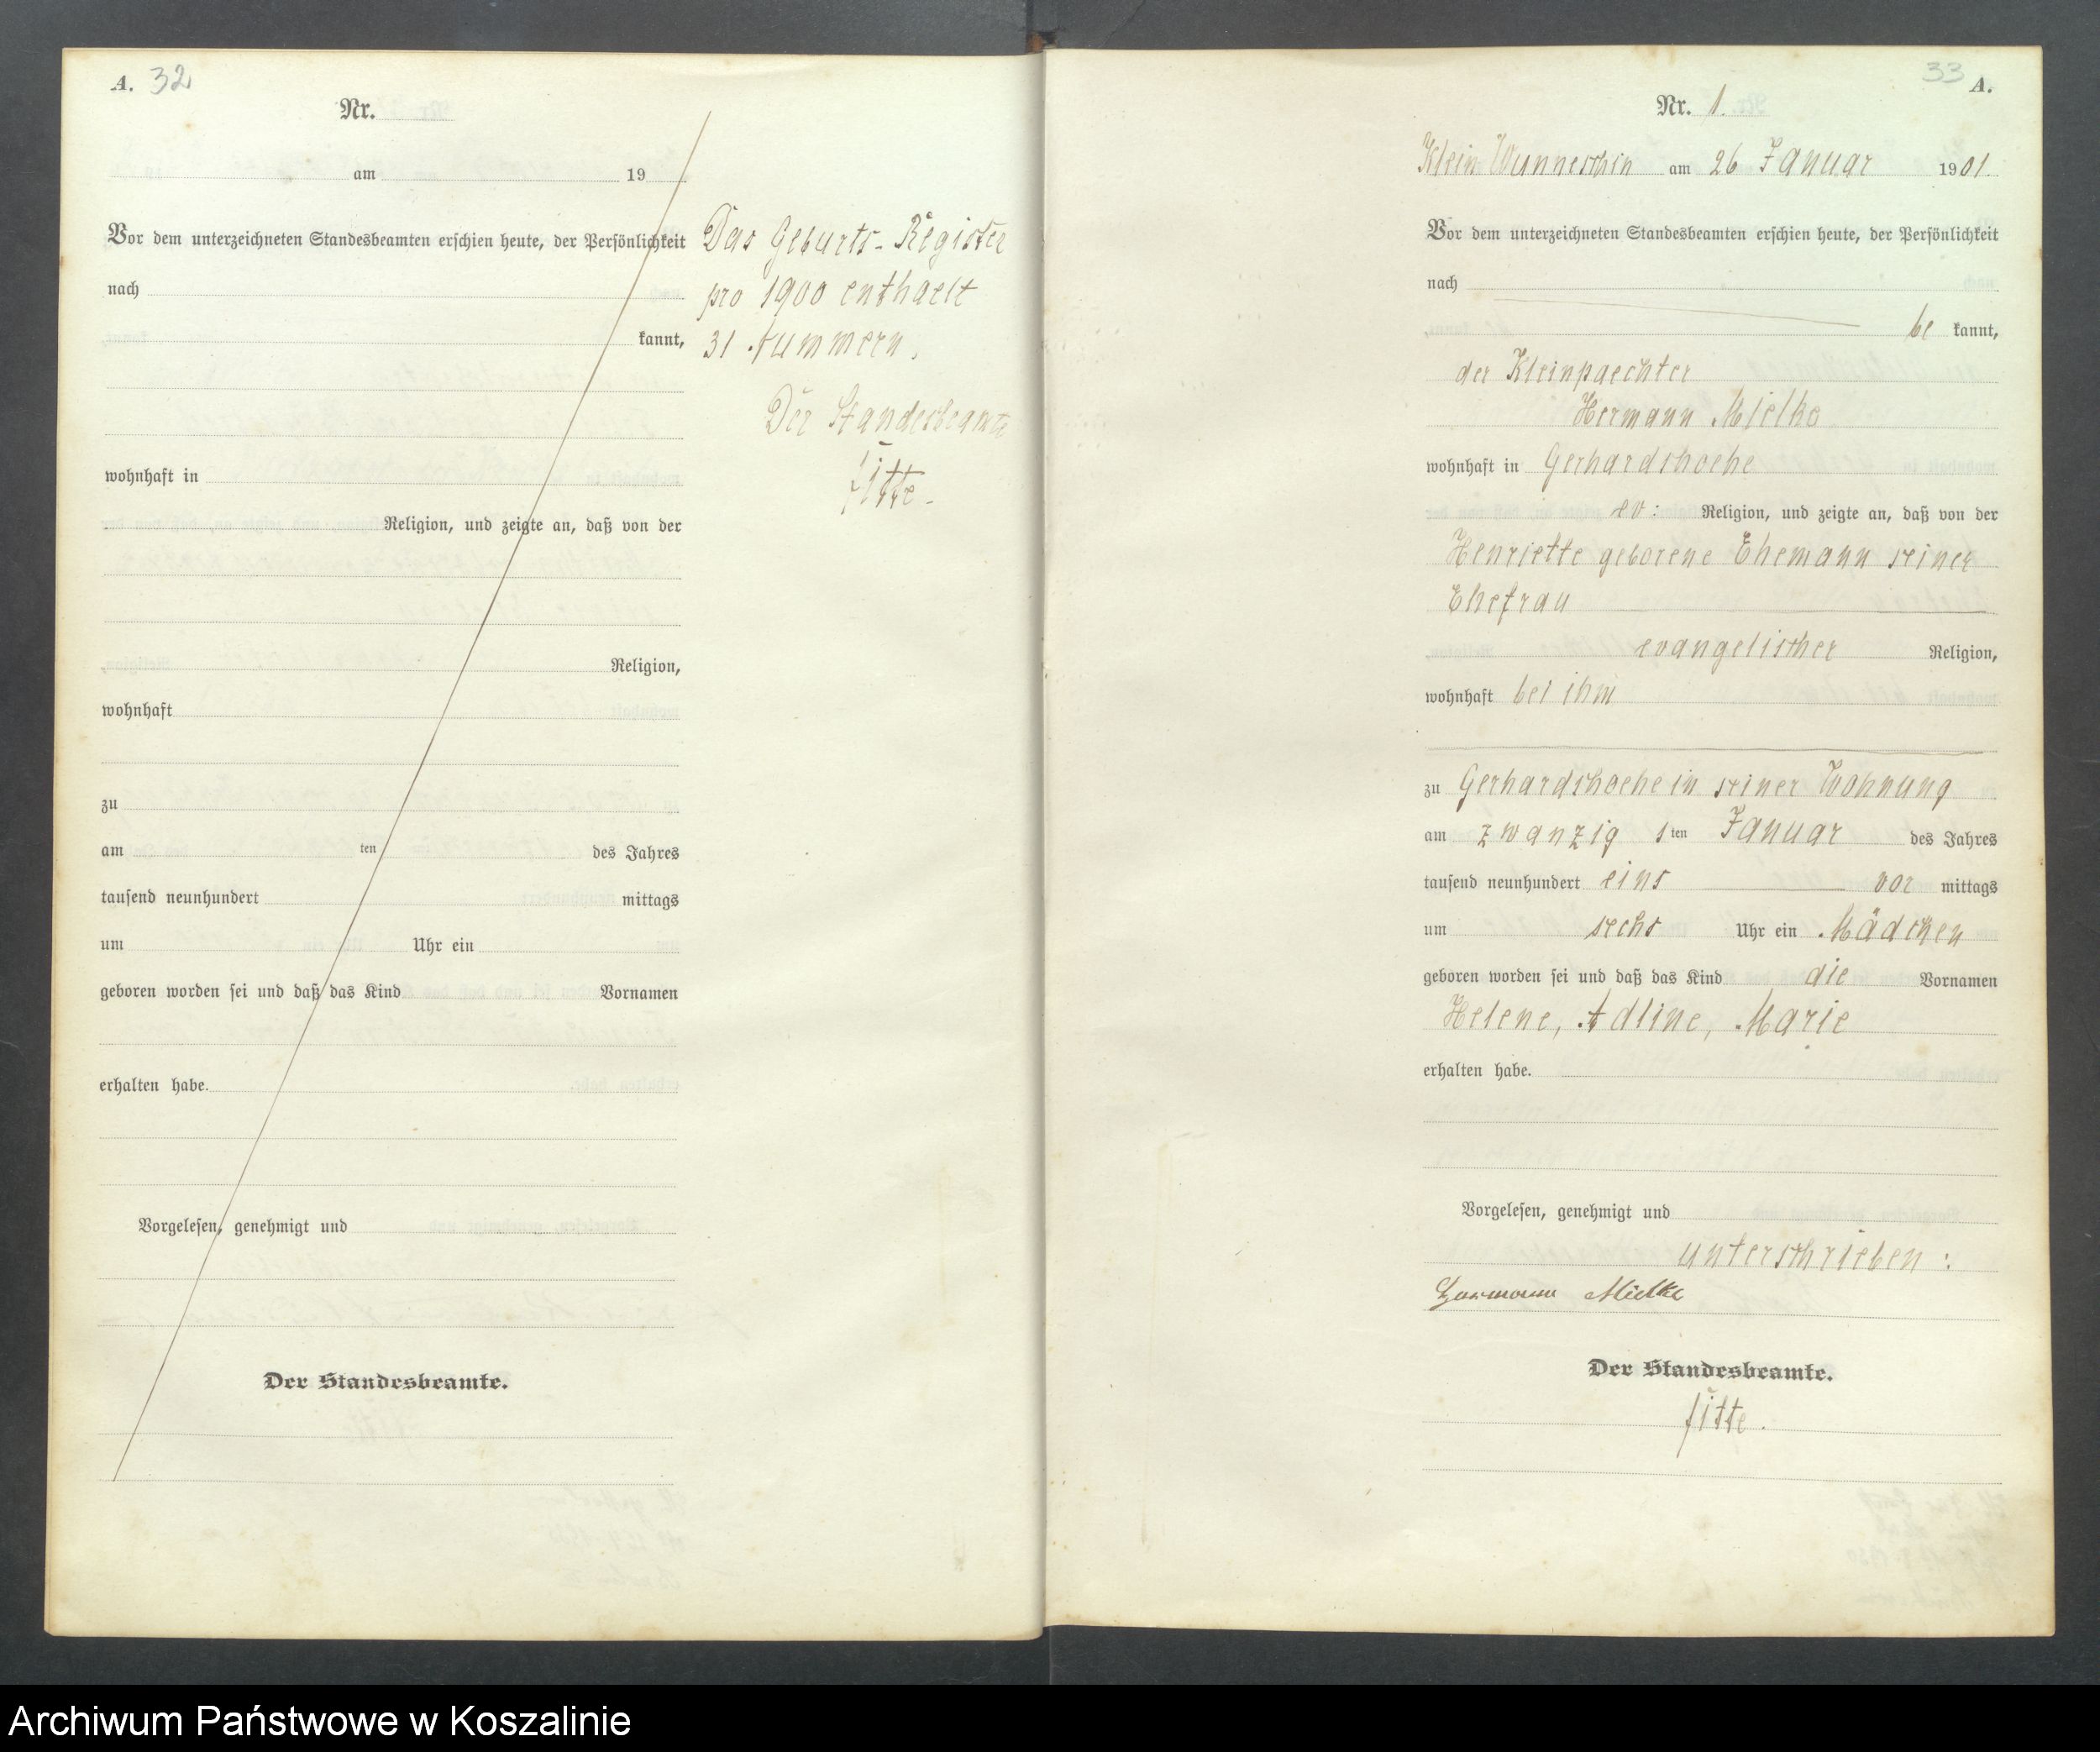 A. 32
Nr.
am 19
Vor dem unterzeichneten Standesbeamten erschien heute, der Persönlichkeit
nach
kannt,
wohnhaft in
Religion, und zeigte an, daß von der
Religion,
wohnhaft
zu
am ten des Jahres
tausend neunhundert mittags
um Uhr ein
geboren worden sei und daß das Kind Vornamen
erhalten habe.
Vorgelesen, genehmigt und
Der Standesbeamte.
Das Geburts-Register
pro 1900 enthaelt
31 Nummern.
Der Standesbeamte
Fitte.
33 A.
Nr. 1.
Klein Wunneschin am 26 Januar 1901.
Vor dem unterzeichneten Standesbeamten erschien heute, der Persönlichkeit
nach
be kannt,
der Kleinpaechter
Hermann Mielke
wohnhaft in Gerhardshoehe
ev: Religion, und zeigte an, daß von der
Henriette geborene Ehemann seiner
Ehefrau
evangelischer Religion,
wohnhaft bei ihm
zu Gerhardshoehe in seiner Wohnung
am zwanzig s ten Januar des Jahres
tausend neunhundert eins vor mittags
um sechs Uhr ein Mädchen
geboren worden sei und daß das Kind die Vornamen
Helene, Adline, Marie
erhalten habe.
Vorgelesen, genehmigt und
unterschrieben:
Hermann Mielke
Der Standesbeamte.
Fitte.
Archiwum Państwowe w Koszalinie